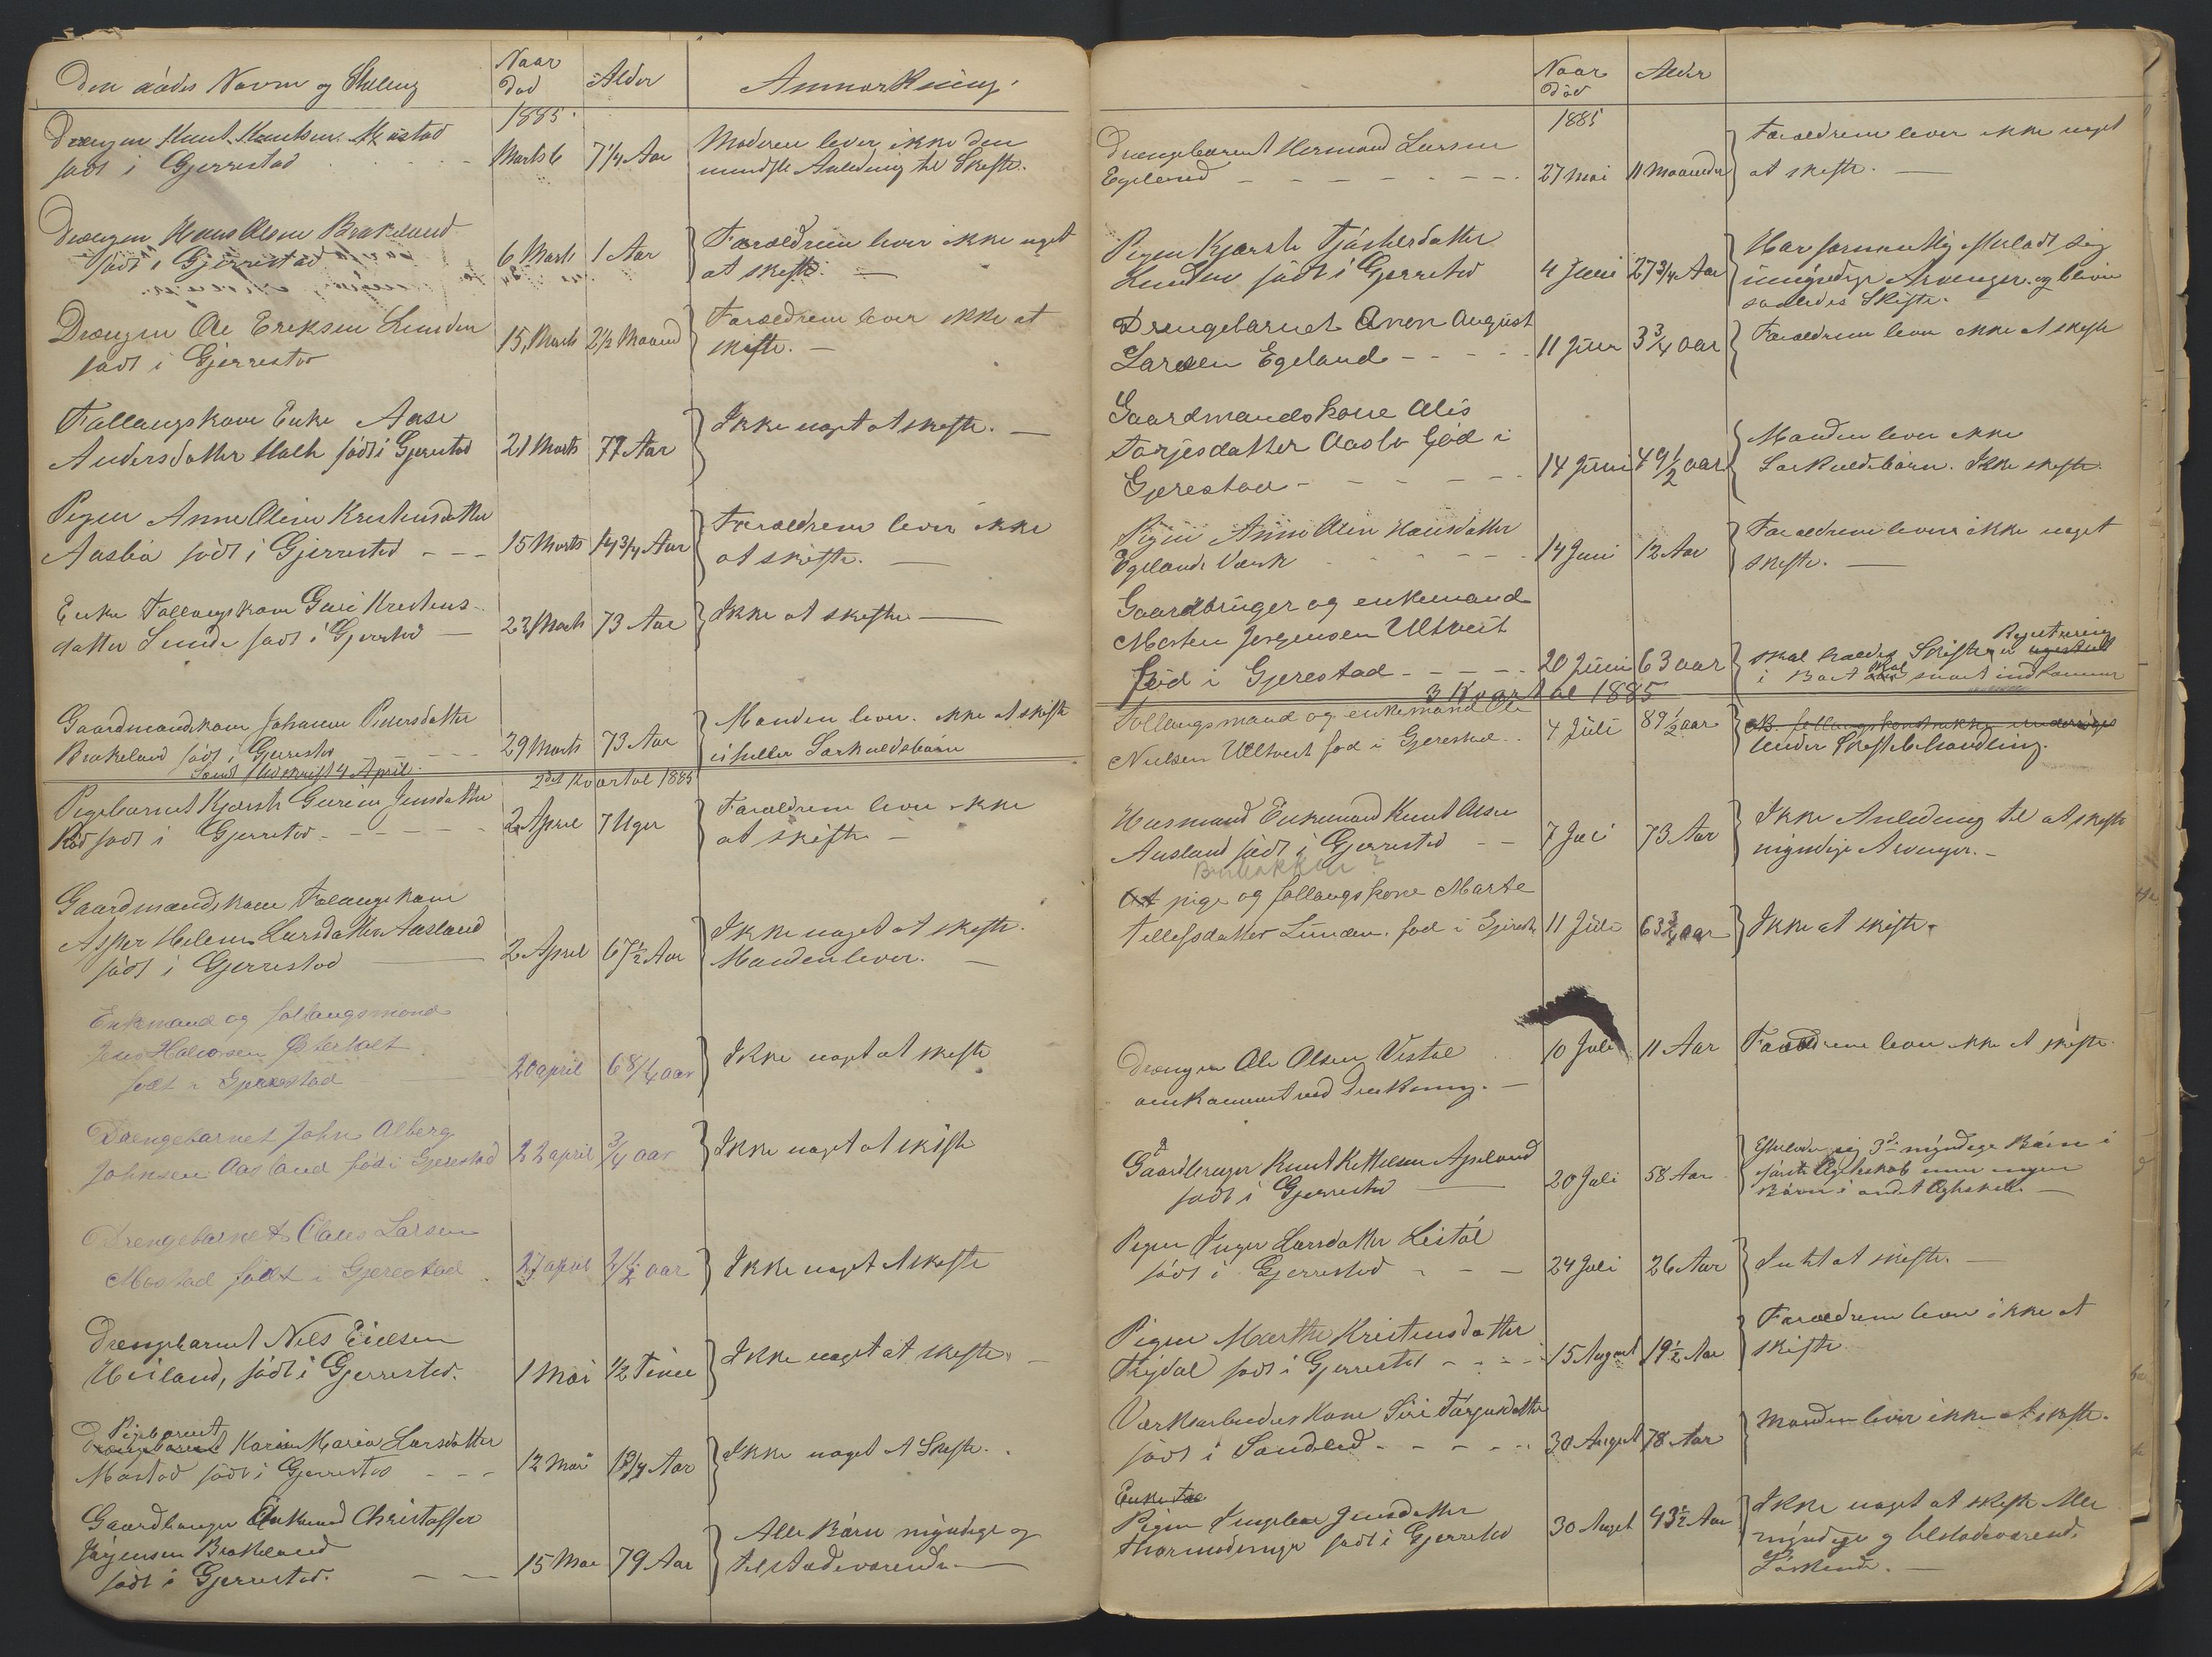 Den dödes Navn og Stilling
Naar Död
Alder
Anmærkning
1885
Drængen Knut Knutsen Mostad
födt i Gjerrestad
Marts 6
7 1/4 Aar
Moderen lever ikke den
mindste Anledning til Skifte.
Drængen Hans Olsen Brakeland
födt i Gjerrestad
6 Marts
1 Aar
Forældrene lever ikke noget
at skifte.
Drængen Ole Eriksen Lunden
födt i Gjerrestad
15 Marts
2 1/2 Maaned
Forældrene lever ikke at
skifte.
Follaugskone Enke Aase
Andersdatter Holt födt i Gjerrestad
21 Marts
77 Aar
Ikke noget at skifte.
Pigen Anne Oline Kristensdatter
Aasbö födt i Gjerrestad
15 Marts
14 3/4 Aar
Forældrene lever ikke
at skifte.
Enke Follaugskone Guri Kristens-
datter Lunde födt i Gjerrestad
23 Marts
73 Aar
Ikke at skifte
Gaardmandskone Johanne Pedersdatter
Brakeland födt i Gjerrestad
29 Marts
73 Aar
Manden lever. ikke at skifte
ei heller Særkuldsbörn
Sendt Udskrift 4 April.
2det Kvartal 1885
Pigebarnet Kjerste Gurine Jensdatter
Röd födt i Gjerrestad
2 April
7 Uger
Forældrene lever ikke
at skifte
Gaardmandskone Folaugskone
Asper Helene Larsdatter Aasland
födt i Gjerrestad
2 April
67 1/2 Aar
Ikke noget at skifte.
Manden lever.
Enkemand og follaugsmand
Jens Halvorsen Østerholt
født i Gjerestad
20 april
68 1/4 aar
Ikke noget at skifte
Drengebarnet John Alberg
Johnsen Aasland född i Gjerestad
22 april
3/4 aar
Ikke noget at skifte
Drengebarnet Claus Larsen
Mostad født i Gjerestad
27 april
2 1/2 aar
Ikke noget at skifte
Drengebarnet Nils Eielsen
Heiland, födt i Gjerrestad.
1 Mai
1/2 Time
Ikke noget at skifte
Pigebarnet
Drengebarnet Karen Maria Larsdatter
Mostad födt i Gjerrestad
12 Mai
1 3/4 Aar
Ikke noget at Skifte.
Gaardbruger Enkemand Christoffer
Jörgensen Brakeland
födt i Gjerrestad.
15 Mai
79 Aar
Alle Börn myndige og
tilstedeværende.
Naar död
Alder
1885
Drengebarnet Hermand Larsen
Egeland
27 Mai
11 Maaneder
Forældrene lever ikke noget
at skifte.
Pigen Kjerste Tjöstelsdatter
Lunden födt i Gjerrestad
4 Juni
27 3/4 Aar
Har formentlig efterladt sig
umyndige Arvinger. og bliver
saaledes Skifte.
Drengebarnet Anen August
Larsen Egeland
11 Juni
3 3/4 aar
Forældrene lever ikke at skifte
Gaardmandskone Alis
Torjesdatter Aasbö föd i
Gjerestad
14 Juni
49 1/2 aar
Manden lever ikke
Særkuldsbörn. Ikke skifte.
Pigen Anne Oline Hansdatter
Egelands Værk
14 Juni
12 Aar
Forældrene lever ikke noget
skifte.
Gaardbruger og enkemand
Morten Jørgensen Ulltveit
föd i Gjerestad
20 Juni
63 aar
Registrering
skal holdes Skifte
i Boet skal snart indkomme
3 Kvartal 1885
Follaugsmand og enkemand Ole
Nielsen Ulltveit fød i Gjerestad
4 Juli
89 1/2 aar
under Skiftebehandling.
Husmand Enkemand Knut Olsen
Ausland födt i Gjerrestad
7 Juli
73 Aar
Ikke Anledning til at skifte
myndige Arvinger.
pige og follaugskone Marte
Tellefsdatter Lunden. fød i Gjerest.
11 Juli
63 3/4 aar
Ikke at skifte.
Drengen Ole Olsen Vestöl
omkommet ved Drukning.
10 Juli
11 Aar
Forældrene lever ikke at skifte.
Gaardbruger Knut Kittelsen Apeland
födt i Gjerrestad
20 Juli
58 Aar
Efterlader sig 3de myndige Börn i
förste Egteskab men ingen
Börn i andet Egteskab.
Pigen Inger Larsdatter Listöl
födt i Gjerrestad
24 Juli
26 Aar
Intet at skifte.
Pigen Marthe Kristensdatter
Trydal födt i Gjerrestad
15 August
19 1/2 Aar
Forældrene lever ikke at
skifte
Værksarbeiders Kone Siri Torjusdatter
födt i Søndeled
30 August
78 Aar
Manden lever ikke at skifte.
Enke Fol
Pigen Ingeborg Jensdatter
födt i Gjerrestad
30 August
43 1/2 Aar
Ikke noget at skifte Alle
myndige og tilstedeværende
Söskende.